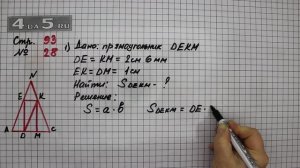 4АSУ.RU
Стр. 93
№ 28
1) Дано: прямоугольник DEKM
DE = KM = 2см 6мм
EK = DM = 1см
Найти: SDEKM - ?
Решение:
S = a · b SDEKM = DE ·
N
E K
A D M C